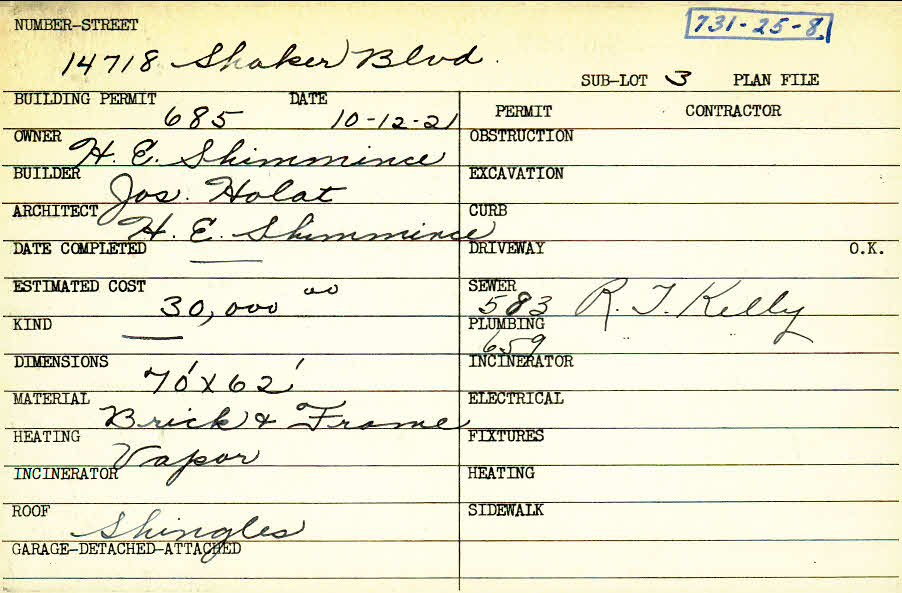 NUMBER-STREET
731-25-8
14718 Shaker Blvd.
SUB-LOT 3 PLAN FILE
BUILDING PERMIT 685 DATE 10-12-21
PERMIT CONTRACTOR
OWNER H. E. Shimmince
OBSTRUCTION
BUILDER Jos. Holat
EXCAVATION
ARCHITECT H. E. Shimmince
CURB
DATE COMPLETED —
DRIVEWAY O.K.
ESTIMATED COST 30,000 00
SEWER 583 R. J. Kelly
KIND —
PLUMBING 659
DIMENSIONS 70' X 62'
INCINERATOR
MATERIAL Brick & Frame
ELECTRICAL
HEATING Vapor
FIXTURES
INCINERATOR
HEATING
ROOF Shingles
SIDEWALK
GARAGE-DETACHED-ATTACHED